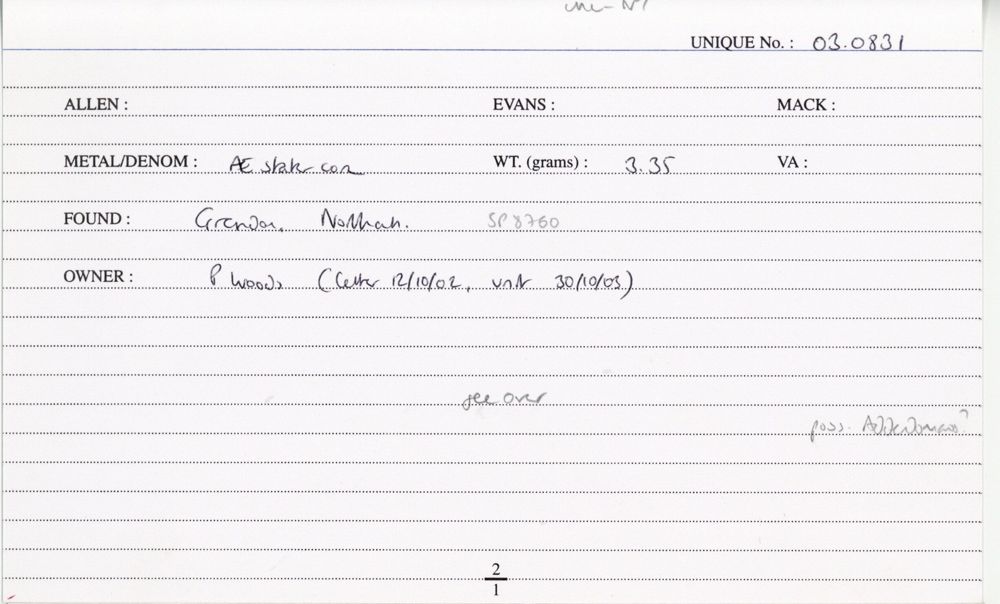 UNIQUE No. : 03.0831
ALLEN : EVANS : MACK :
METAL/DENOM : Æ stater core WT. (grams) : 3.35 VA :
FOUND : Grendon, Northan. SP 8760
OWNER : P Woods (letter 12/10/02, visit 30/10/03)
see over
poss. Addedomaros?
2
1